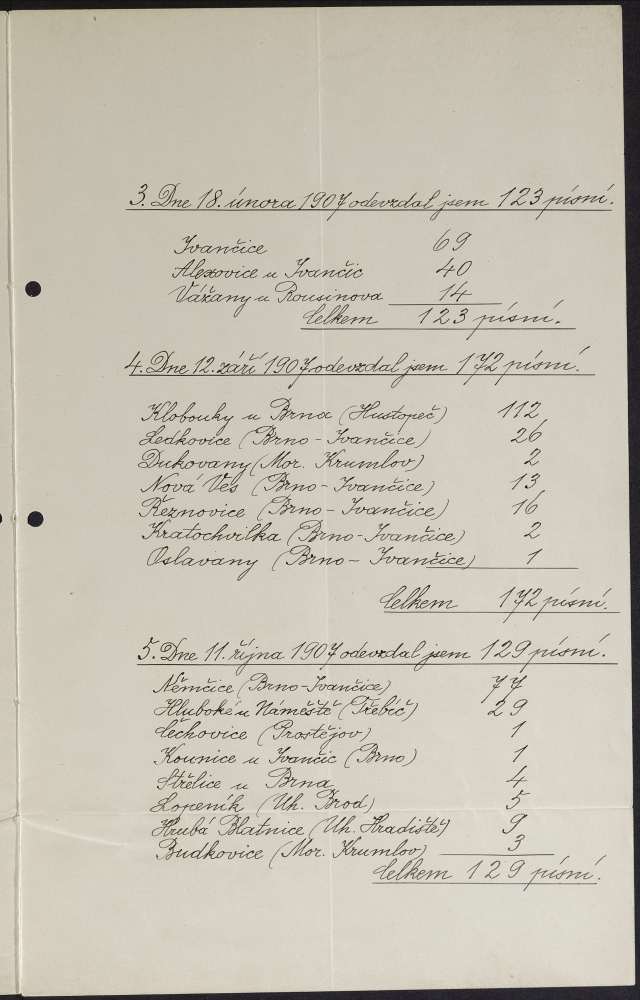 3. Dne 18. února 1907 odevzdal jsem 123 písní.
Ivančice 69
Alexovice u Ivančic 40
Vážany u Rousinova 14
Celkem 123 písní.
4. Dne 12. září 1907 odevzdal jsem 172 písní.
Klobouky u Brna (Hustopeč) 112
Ledkovice (Brno - Ivančice) 26
Dukovany (Mor. Krumlov) 2
Nová Ves (Brno - Ivančice) 13
Řeznovice (Brno - Ivančice) 16
Kratochvilka (Brno - Ivančice) 2
Oslavany (Brno - Ivančice) 1
Celkem 172 písní.
5. Dne 11. října 1907 odevzdal jsem 129 písní.
Němčice (Brno-Ivančice) 77
Hluboké u Náměště (Třebíč) 29
Čechovice (Prostějov) 1
Kounice u Ivančic (Brno) 1
Střelice u Brna 4
Lopeník (Uh. Brod) 5
Hrubá Blatnice (Uh. Hradiště) 9
Budkovice (Mor. Krumlov) 3
Celkem 129 písní.